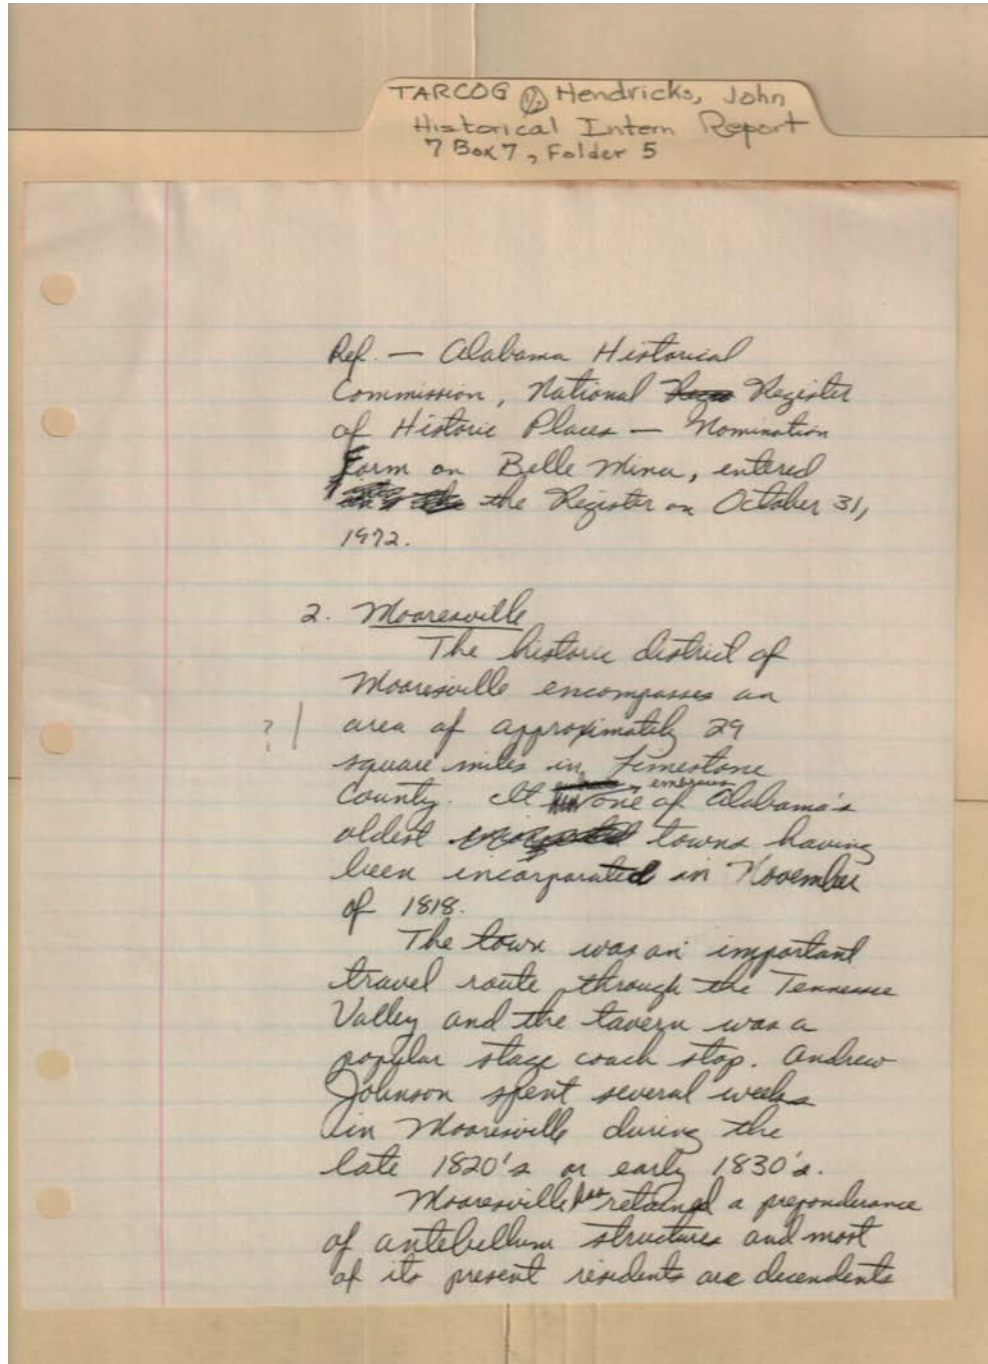 TARCOG Hendricks, John
Historical Intern Report
7 Box 7, Folder 5
Ref. — Alabama Historical
Commission, National Register
of Historic Places — Nomination
Form on Belle Mina, entered
the Register on October 31,
1972.
2. Mooresville
The historic district of
Mooresville encompasses an
? | area of approximately 29
square miles in Limestone
County. It embraces one of Alabama's
oldest towns having
been incorporated in November
of 1818.
The town was an important
travel route through the Tennessee
Valley and the tavern was a
popular stage coach stop. Andrew
Johnson spent several weeks
in Mooresville during the
late 1820's or early 1830's.
Mooresville has retained a preponderance
of antebellum structures and most
of its present residents are decendents